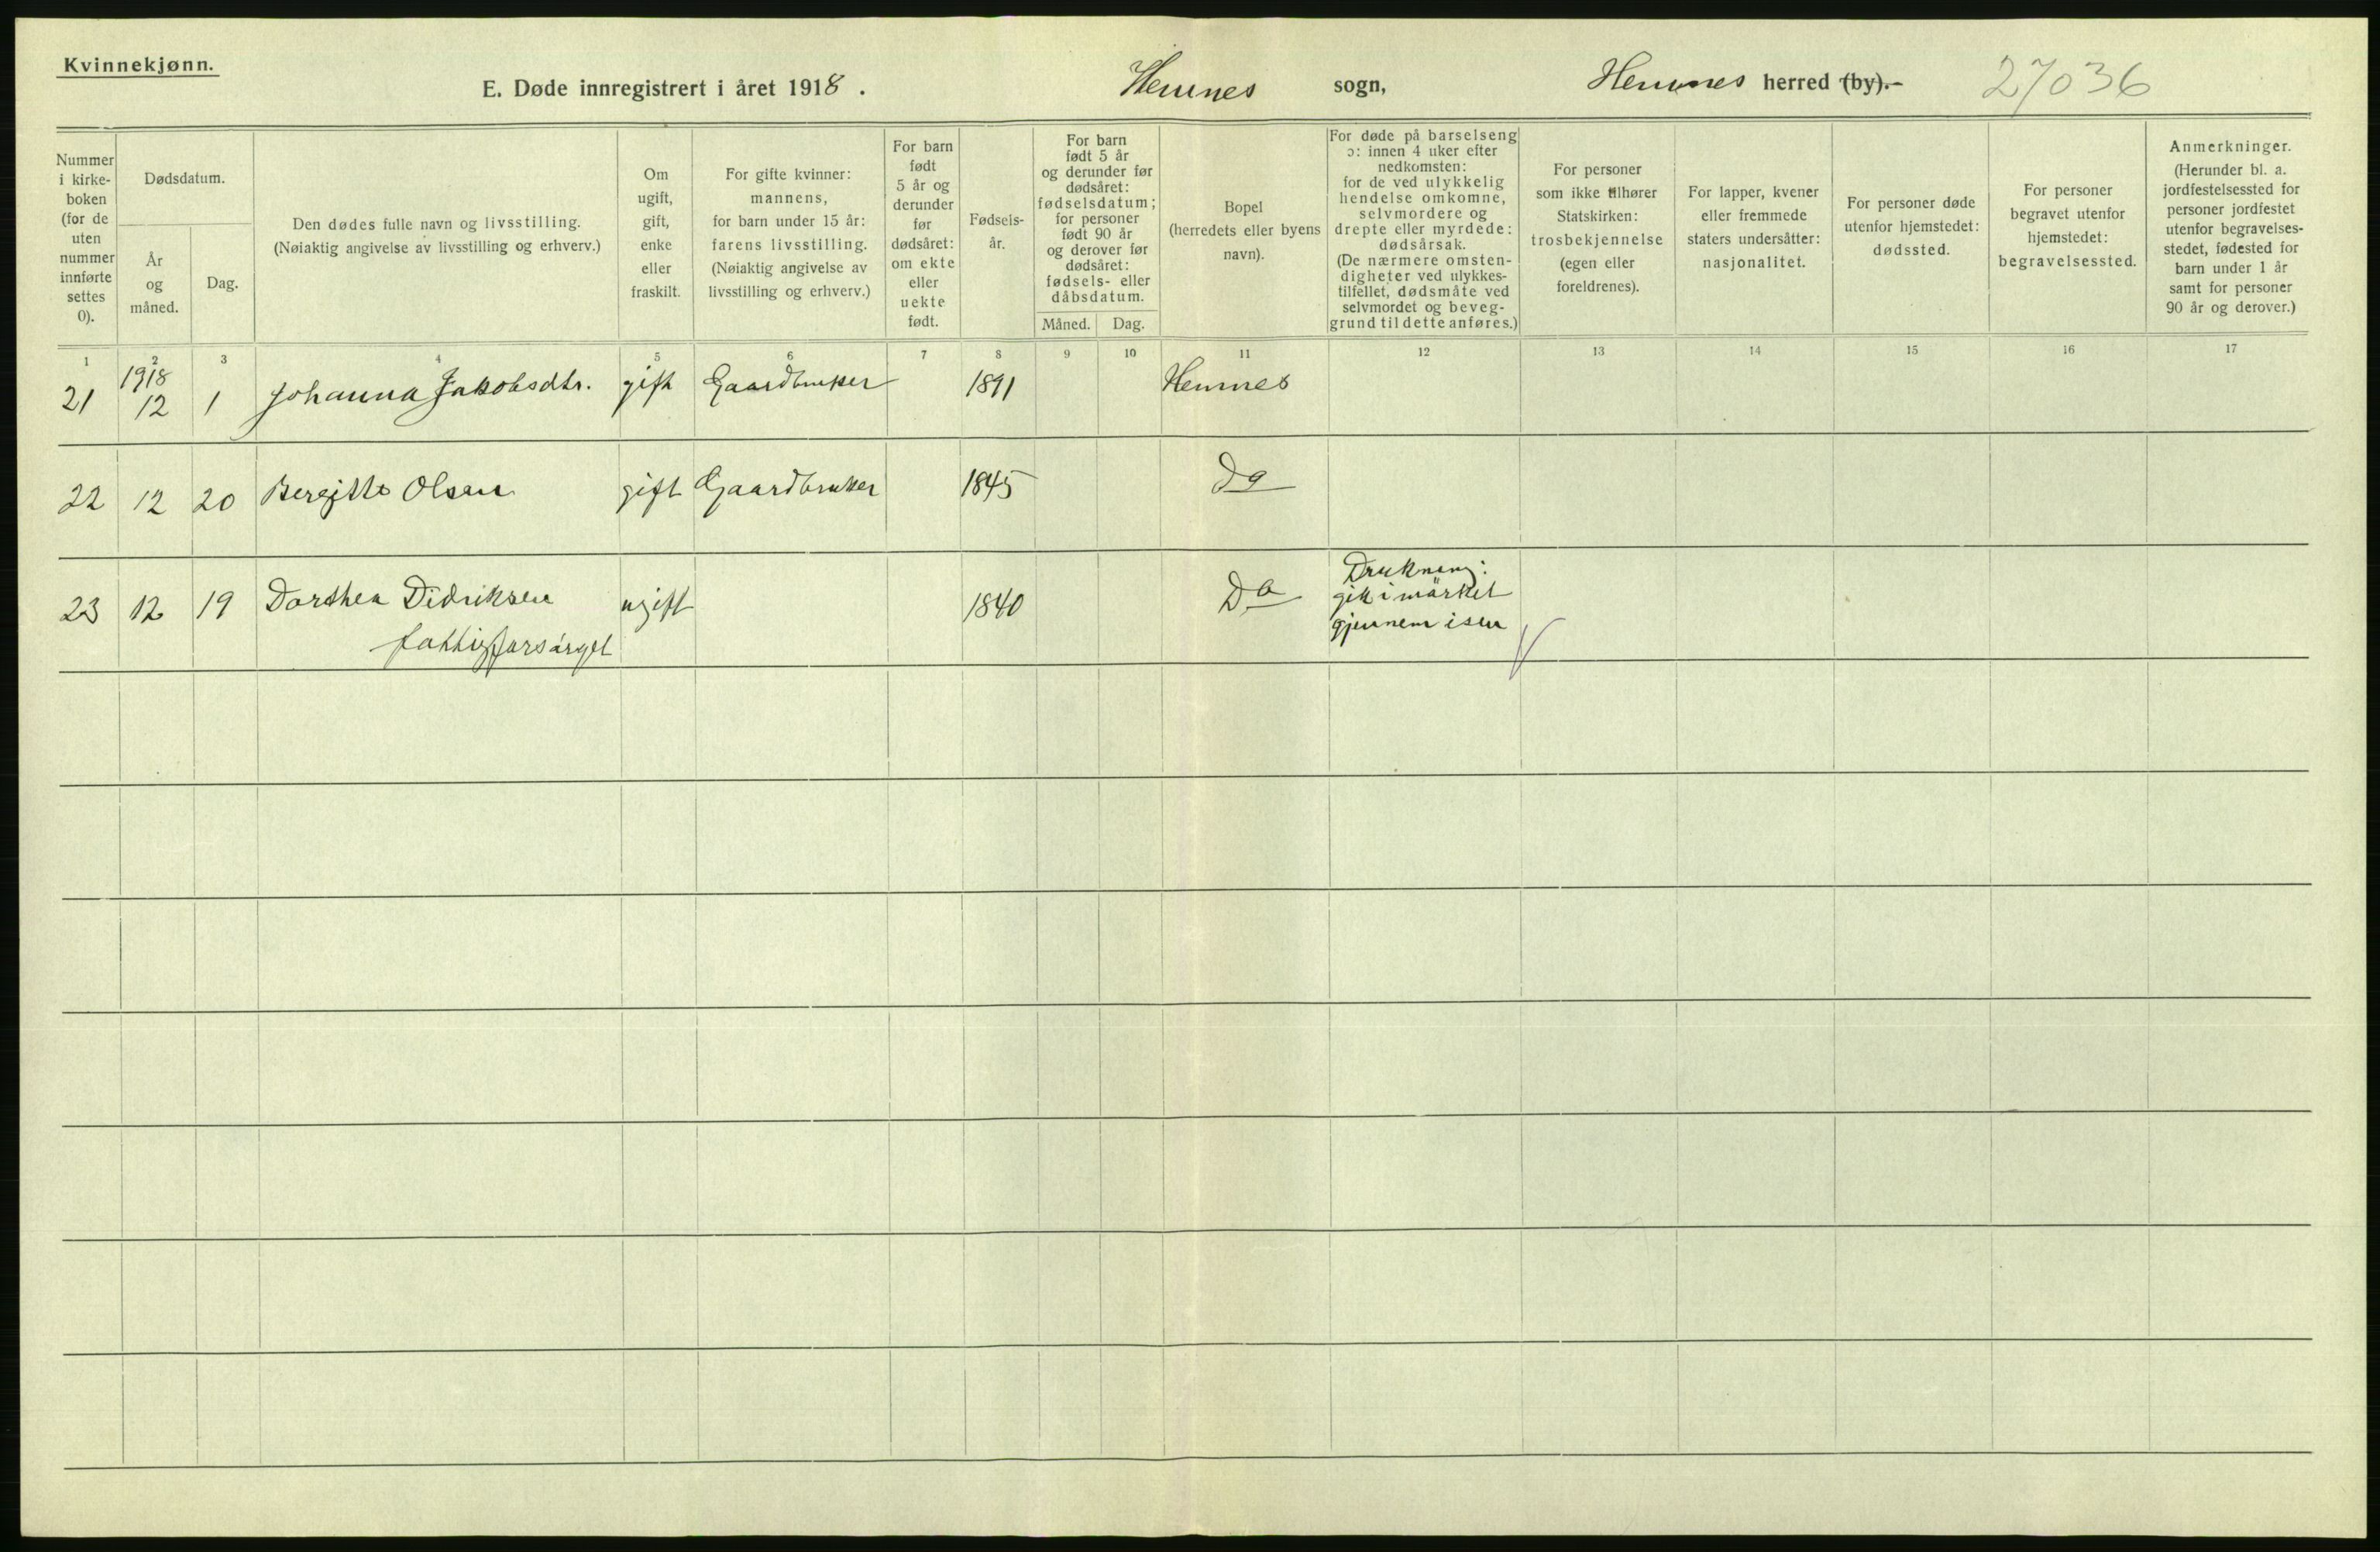 Kvinnekjønn.
E. Døde innregistrert i året 1918. Hemnes sogn, Hemnes herred (by). 27036
Nummer
i kirke-
boken
(for de
uten
nummer
innførte
settes
0).
Dødsdatum.
År
og
måned.
Dag.
Den dødes fulle navn og livsstilling.
(Nøiaktig angivelse av livsstilling og erhverv.)
Om
ugift,
gift,
enke
eller
fraskilt.
For gifte kvinner:
mannens,
for barn under 15 år:
farens livsstilling.
(Nøiaktig angivelse av
livsstilling og erhverv.)
For barn
født
5 år og
derunder
før
dødsåret:
om ekte
eller
uekte
født.
Fødsels-
år.
For barn
født 5 år
og derunder før
dødsåret:
fødselsdatum;
for personer
født 90 år
og derover før
dødsåret:
fødsels- eller
dåbsdatum.
Måned. Dag.
Bopel
(herredets eller byens
navn).
For døde på barselseng
ɔ: innen 4 uker efter
nedkomsten:
for de ved ulykkelig
hendelse omkomne,
selvmordere og
drepte eller myrdede:
dødsårsak.
(De nærmere omsten-
digheter ved ulykkes-
tilfellet, dødsmåte ved
selvmordet og beveg-
grund til dette anføres.)
For personer
som ikke tilhører
Statskirken:
trosbekjennelse
(egen eller
foreldrenes).
For lapper, kvener
eller fremmede
staters undersåtter:
nasjonalitet.
For personer døde
utenfor hjemstedet:
dødssted.
For personer
begravet utenfor
hjemstedet:
begravelsessted.
Anmerkninger.
(Herunder bl. a.
jordfestelsessted for
personer jordfestet
utenfor begravelses-
stedet, fødested for
barn under 1 år
samt for personer
90 år og derover.)
1 2 3 4 5 6 7 8 9 10 11 12 13 14 15 16 17
1918
21 12 1 Johanna Jakobsdtr. gift Gaardbruker 1891 Hemnes
22 12 20 Beregitte Olsen gift Gaardbruker 1845 Do
23 12 19 Dorthea Didriksen ugift 1840 Do
fattigforsørget
Drukning:
gik i mørket
gjennem isen